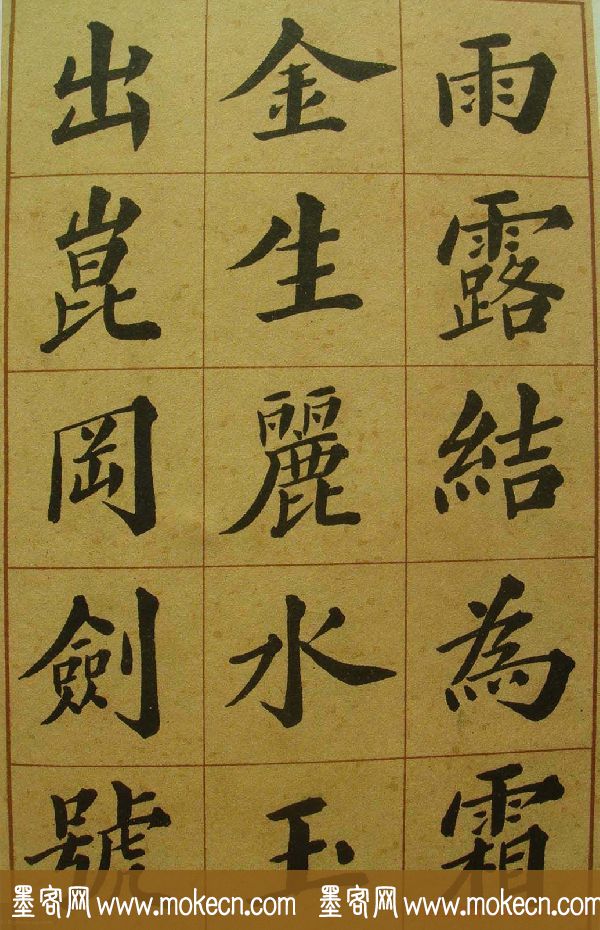 雨露結為霜
金生麗水玉
出崑岡劍號
墨客网 www.mokecn.com 墨客网 www.mokecn.com